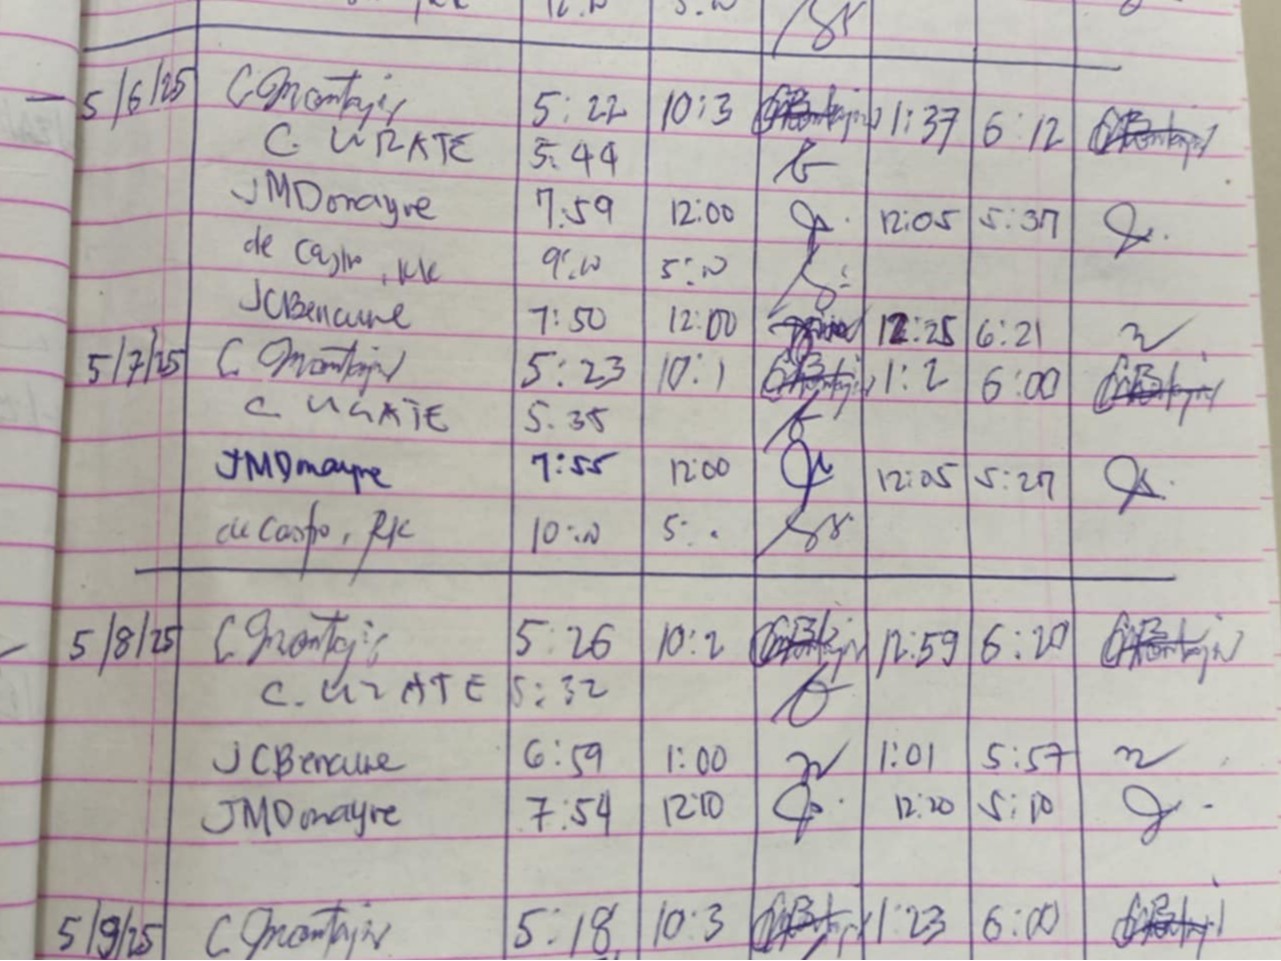 5/6/25 C Montajis 5:22 10:3 1:37 6:12
C. URATE 5:44
JMDonayre 7:59 12:00 12:05 5:37
de Castro, RK 9:10 5:10
JCBencure 7:50 12:00 12:25 6:21
5/7/25 C Montajis 5:23 10:1 1:2 6:00
C. URATE 5:35
JMDonayre 7:55 12:00 12:05 5:27
de Castro, RK 10:10 5:
5/8/25 C Montajis 5:26 10:2 12:59 6:20
C. URATE 5:32
JCBencure 6:59 1:00 1:01 5:57
JMDonayre 7:54 12:10 12:20 5:10
5/9/25 C Montajis 5:18 10:3 1:23 6:00